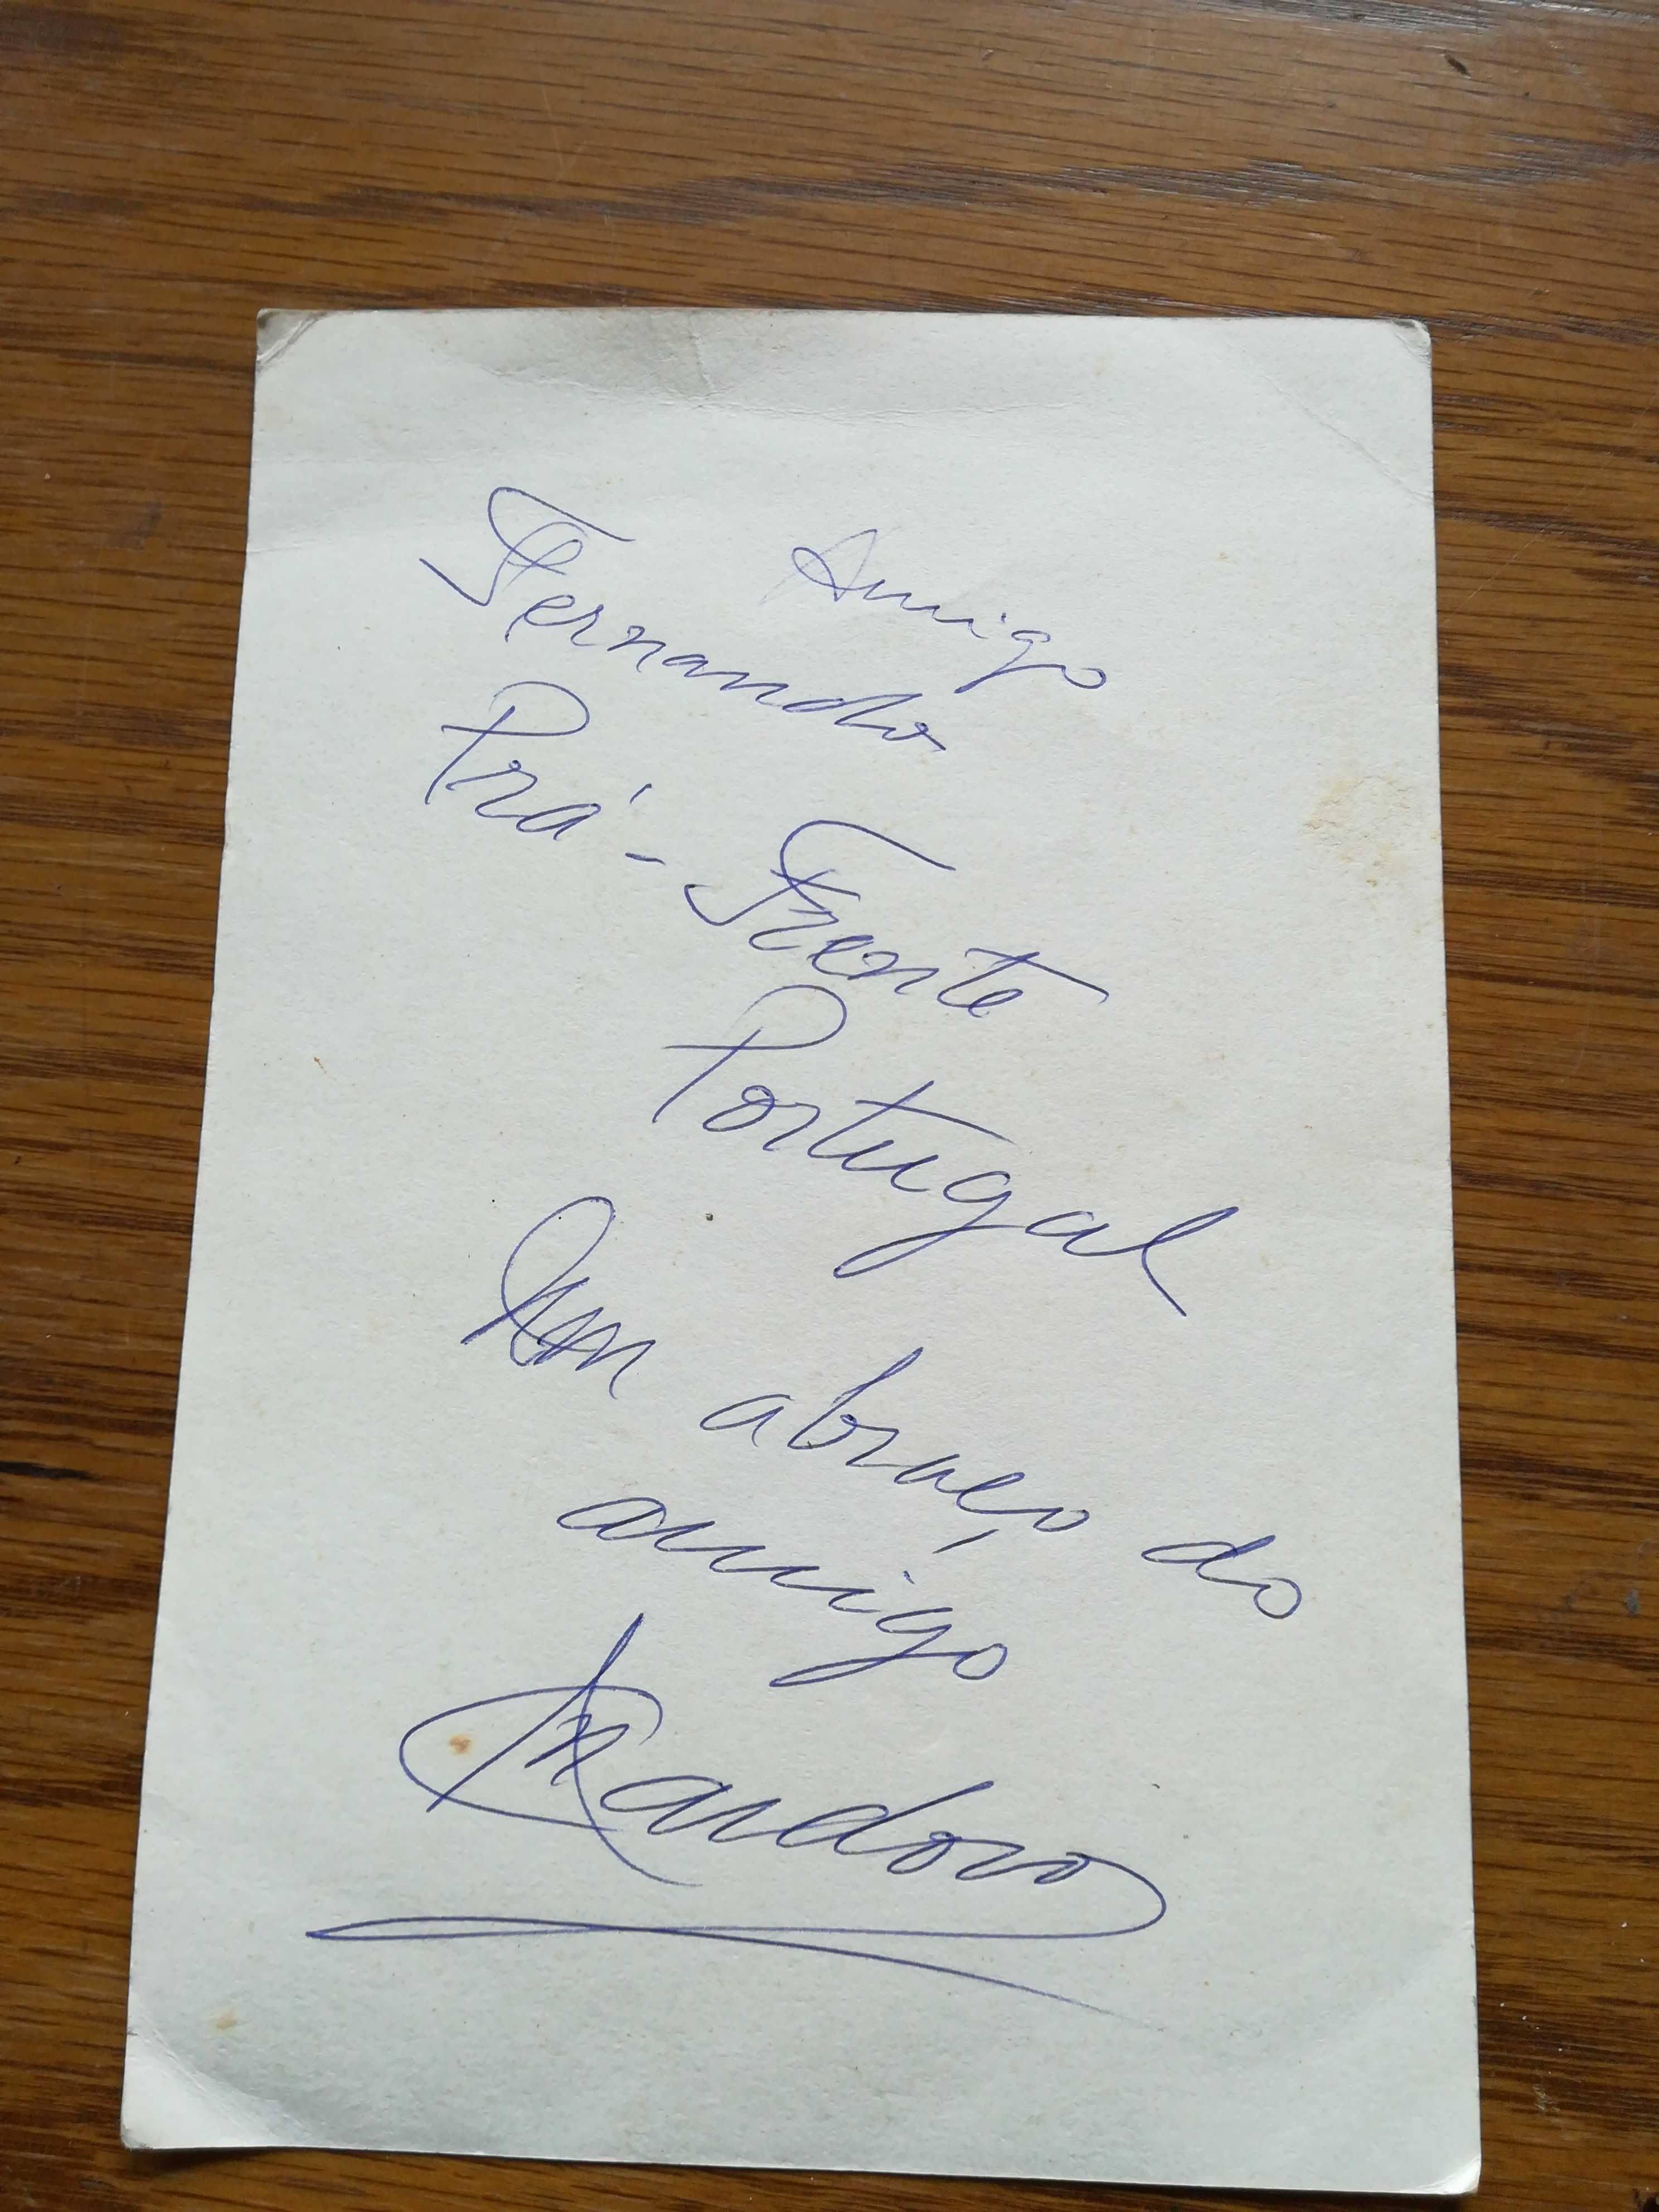 Amigo
Fernando
Prá-Frente
Portugal
Um abraço do
amigo
Cardoso